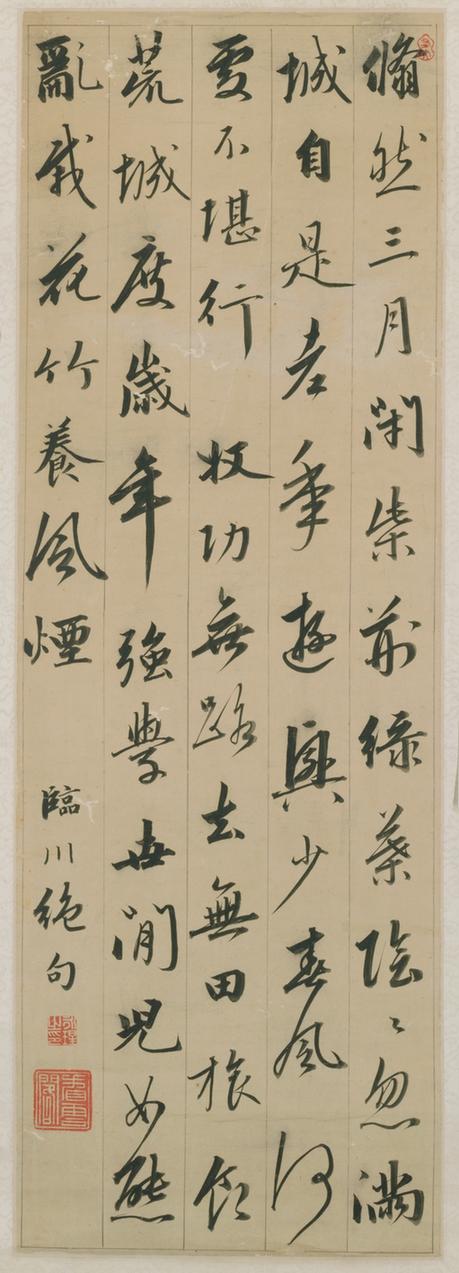 翛然三月閉柴荆綠葉陰〻忽滿
城自是老來遊興少春風何
處不堪行 收功無路去無田旅食
荒城度歲年強學世間兒女態
亂栽花竹養風煙
臨川絶句